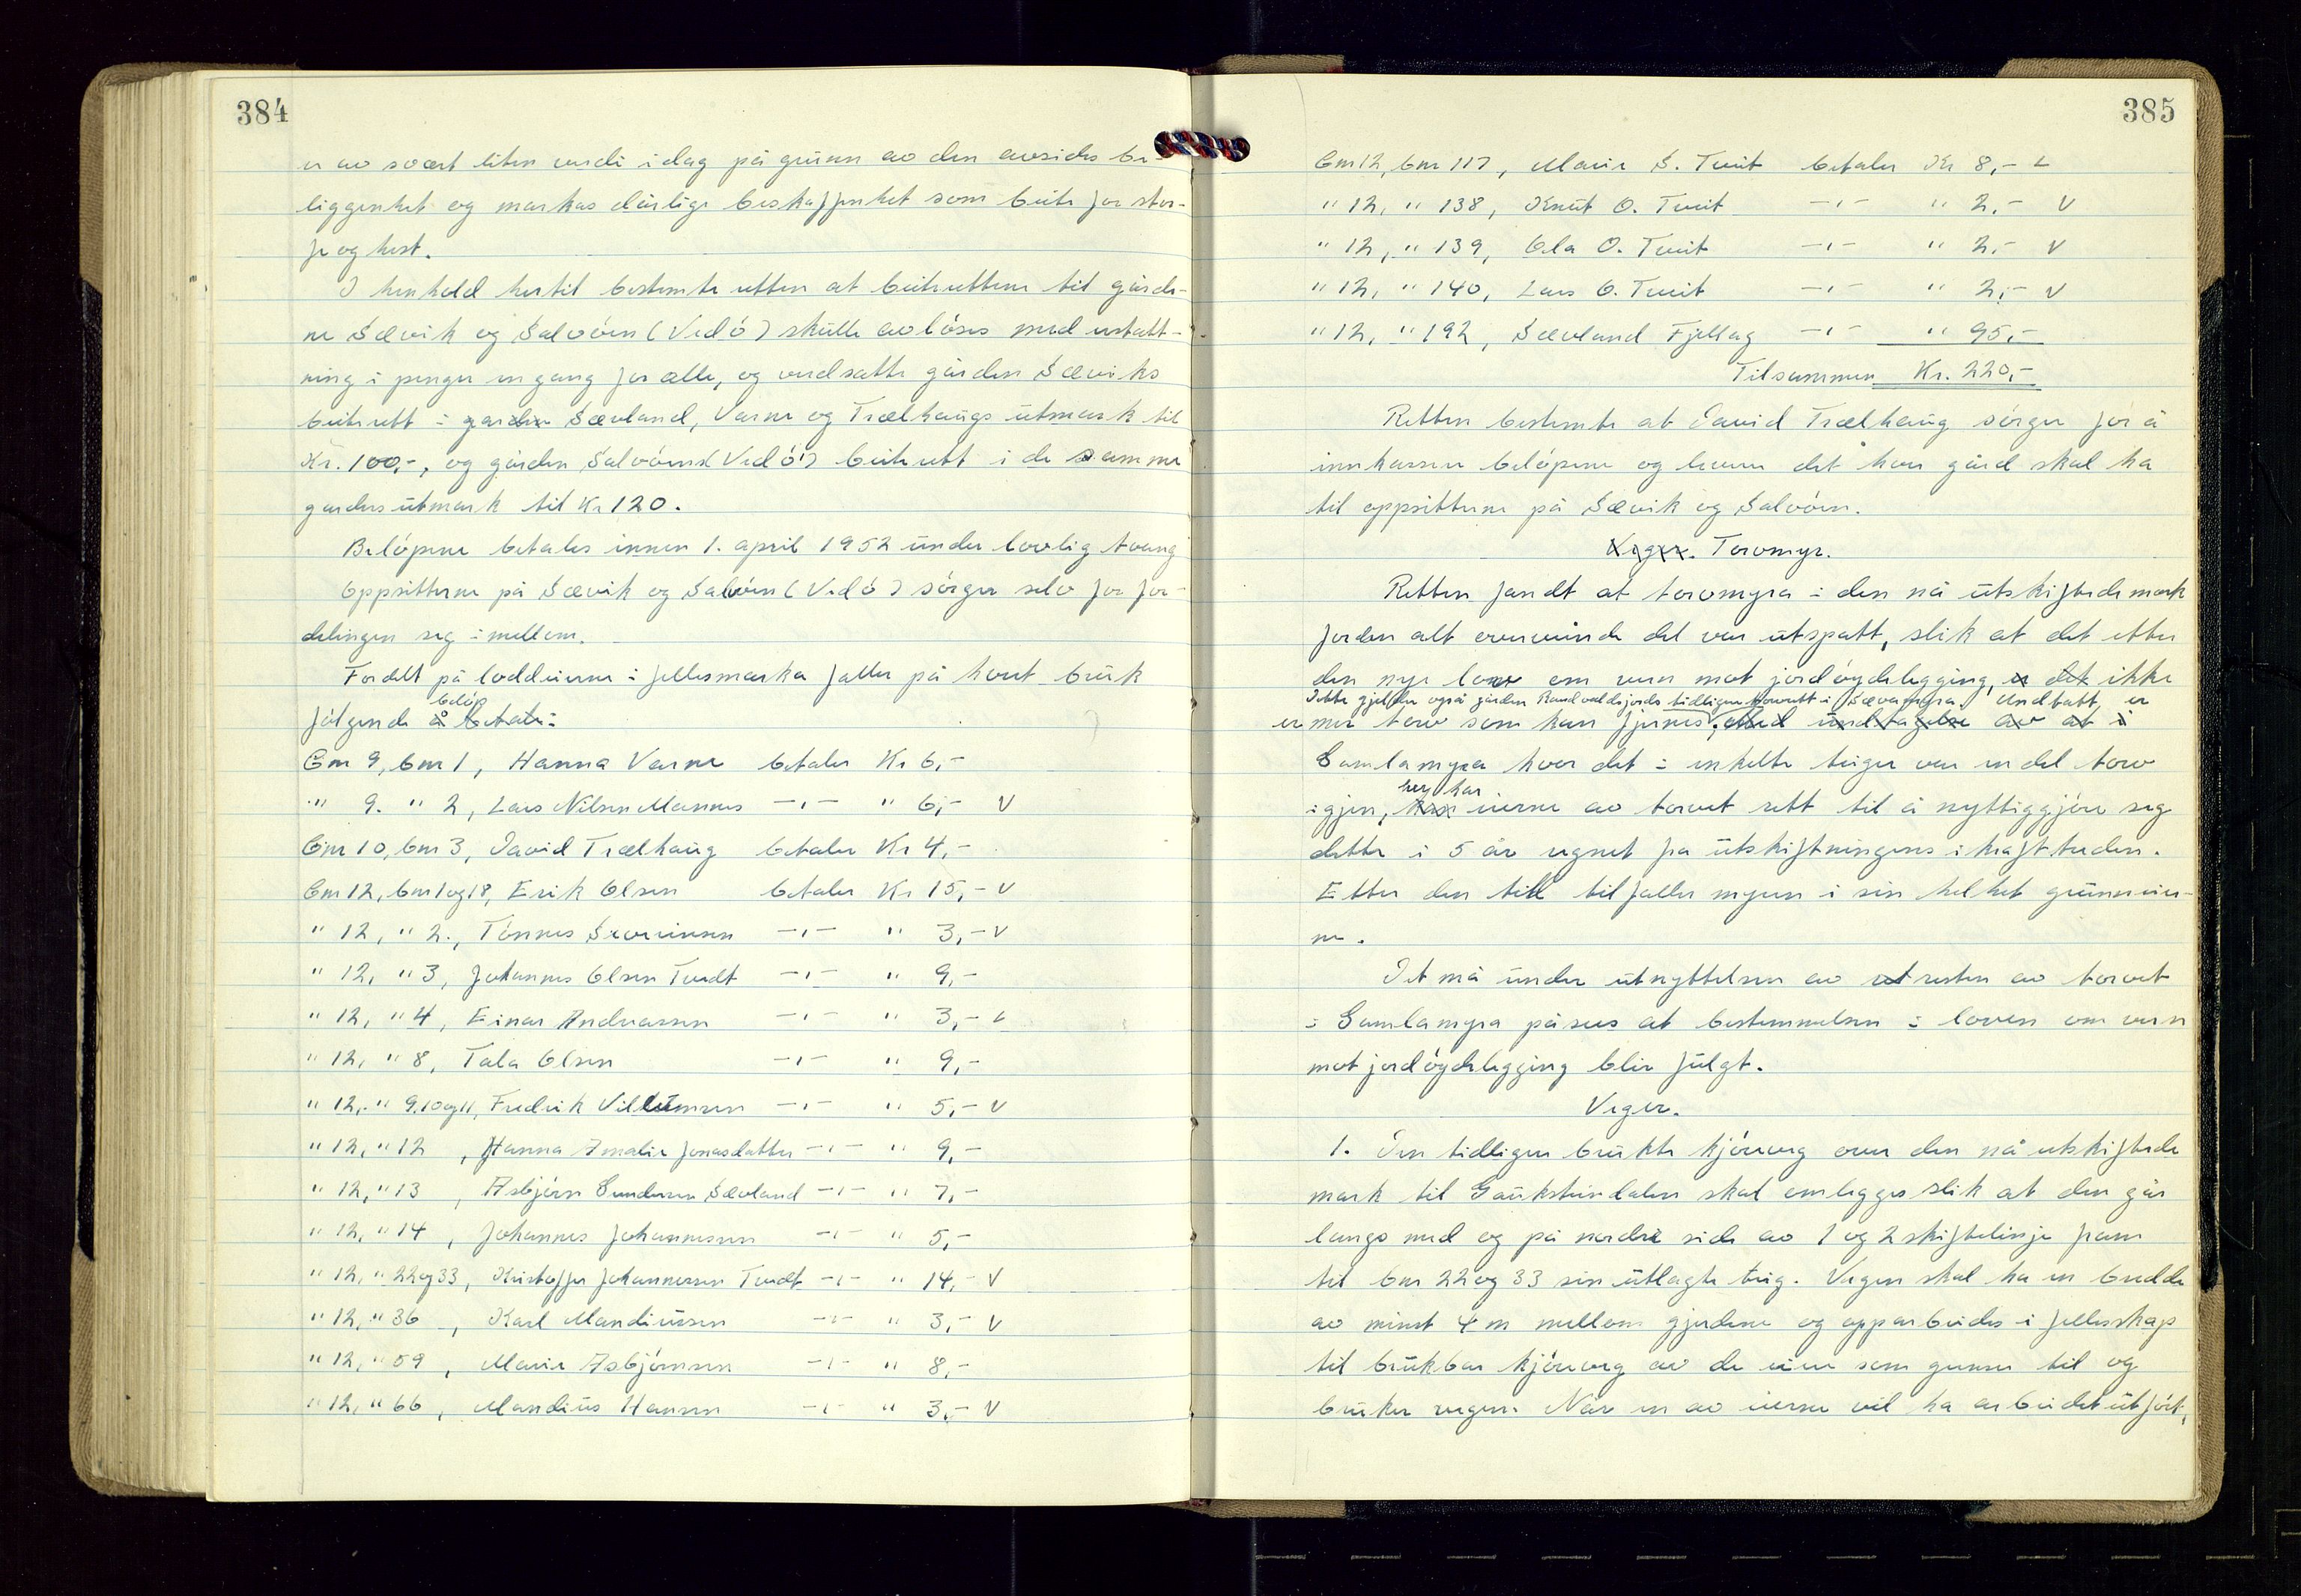 384
er av svært liten verdi i dag på grunn av den avsides be-
liggenhet og markas dårlige beskaffenhet som beite for stor-
fe og hest.
I henhold hertil bestemte retten at beiterettene til gårde-
ne Sævik og Salvöen (Vedö) skulle avlöses med erstatt-
ning i penger en gang for alle, og verdsatte gården Sæviks
beiterett i garden Sævland, Varne og Trælhaugs utmark til
Kr. 100,-, og gården Salvöens (Vedö) beiterett i de samme
garders utmark til Kr 120.
Belöpene betales innen 1. april 1952 under lovlig tvang
Oppsitterne på Sævik og Salvöen (Vedö) sörger selv for for-
delingen seg imellem.
Fordelt på loddeierne i fellesmarka faller på hvert bruk
fölgende å betale: belöp
Gnr 9, bnr 1, Hanna Varne betaler Kr 6,-
" 9. " 2, Lars Nilsen Mannes -"- " 6,- V
Gnr 10, bnr 3, David Trælhaug betaler Kr 4,-
Gnr 12, bnr 1 og 18, Erik Olsen betaler Kr 15,- V
" 12, " 2., Tönnes Severinsen -"- " 3,- V
" 12, " 3, Johannes Olsen Tvedt -"- " 9,-
" 12, " 4, Einar Andreassen -"- " 3,- V
" 12, " 8, Tala Olsen -"- " 9,-
" 12, " 9. 10 og 11, Fredrik Villumsen -"- " 5,- V
" 12, " 12, Hanna Amalie Jonasdatter -"- " 9,-
" 12, " 13, Asbjörn Gundersen Sævland -"- " 7,-
" 12, " 14, Johannes Johannessen -"- " 5,-
" 12, " 22 og 33, Kristoffer Johannessen Tvedt -"- " 14,- V
" 12, " 36, Karl Mandiussen -"- " 3,- V
" 12, " 59, Marie Asbjörnsen -"- " 8,-
" 12, " 66, Mandius Hansen -"- " 3,- V
385
Gnr 12, bnr 117, Marie S. Tveit betaler Kr 8,- V
" 12, " 138, Knut O. Tveit -"- " 2,- V
" 12, " 139, Ola O. Tveit -"- " 2,- V
" 12, " 140, Lars O. Tveit -"- " 2,- V
" 12, " 192, Sævland Fjellag -"- " 95,-
Tilsammen Kr. 220,-
Retten bestemte at David Trælhaug sörger for å
innkassere belöpene og levere det hver gård skal ha
til oppsitterne på Sævik og Salvöen.
Veger. Torvmyr.
Retten fandt at torvmyra i den nå utskiftede mark
forden alt overveiende del var utspatt, slik at det etter
den nye lov om vern mot jordöydelegging, er det ikke
Dette gjelder også gården Randvoldsjords tidligere torvrett i Sævamyra. Undtatt er
er mer torv som kan fjernes, med undtagelse av at i
Gamlamyra hvor det i enkelte teiger var en del torv
igjen, her har eierne av torvet rett til å nyttiggjöre seg
dette i 5 år regnet fra utskiftningens ikrafttreden.
Etter den tid tilfaller myren i sin helhet grunneier-
ne.
Det må under utnyttelsen av resten av torvet
i Gamlamyra påsees at bestemmelsen i loven om vern
mot jordöydelegging blir fulgt.
Veger.
1. Den tidligere brukte kjöreveg over den nå utskiftede
mark til Gauksteindalen skal omlegges slik at den går
langs med og på nordre side av 1 og 2 skiftelinje fram
til bnr 22 og 33 sin utlagte teig. Vegen skal ha en bredde
av minst 4 m mellom gjerdene og opparbeides i fellesskap
til brukbar kjöreveg av de eiere som grenser til og
bruker vegen. Når en av eierne vil ha arbeidet utfört,